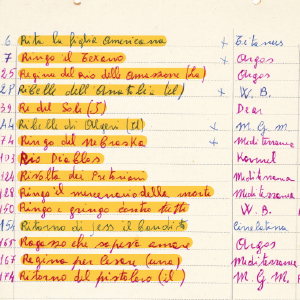 6 Rita la figlia americana x Titanus
7 Ringo il Texano x Orgos
25 Regina del Rio delle Amazzone (La) Orgos
28 Ribelle dell'Anatolia (el) x W. B.
39 Re del Sole (I) Dear
44 Ribelle di Algeri (Il) x M. G. M.
74 Ringo del Nebraska x Mediterranea
103 Rio Diablos Karnel
124 Rivolta dei Pretoriani Mediterranea
128 Ringo il mercenario della morte Mediterranea
150 Ringo e gringo contro tutti W. B.
154 Ritorno di Jess il bandito Cinelatina
165 Ragazzo che sapeva amare Orgos
167 Regina per Cesare (una) Mediterranea
174 Ritorno del pistolero (il) M. G. M.